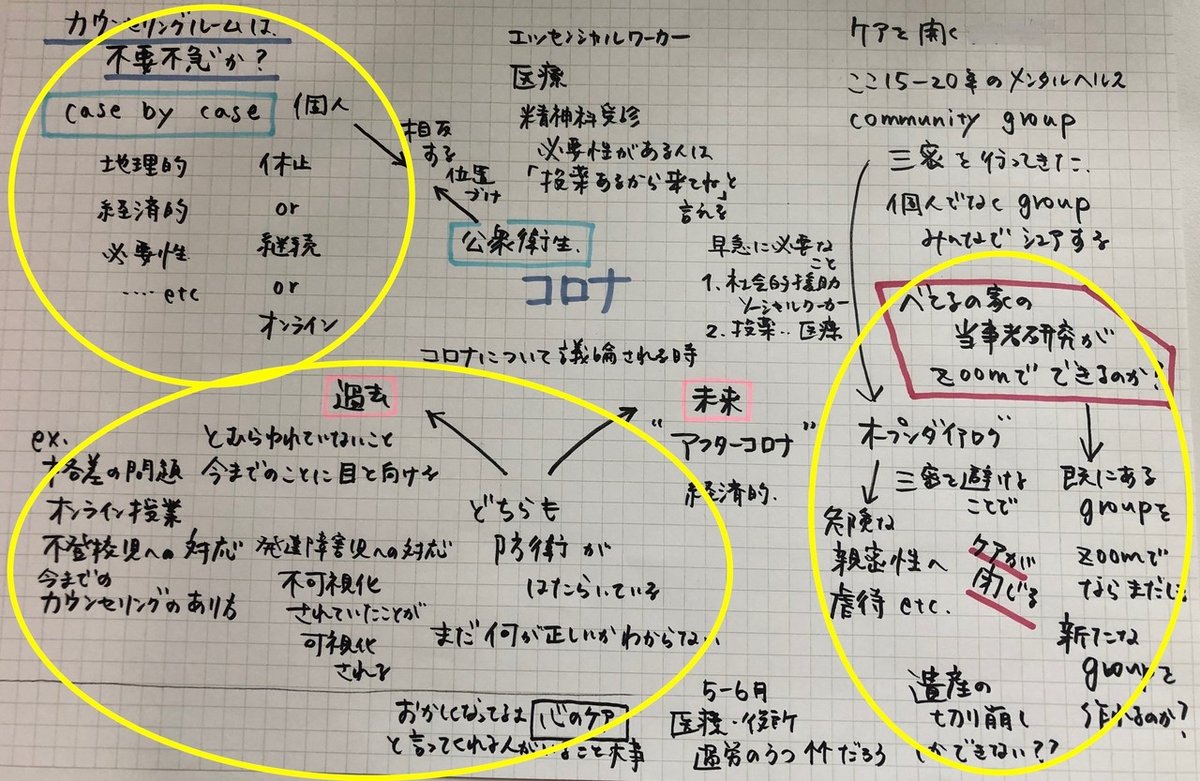 カウンセリングルームは、
不要不急か？
case by case 個人
地理的 休止
経済的 or
必要性 継続
‥‥etc or
オンライン
相反
する
位置
づけ
公衆衛生.
コロナ
エッセンシャルワーカー
医療
精神科受診
必要性がある人は
「投薬あるから来てね」と
言える
早急に必要な
こと
1. 社会的援助
ソーシャルワーカー
2. 投薬‥医療
コロナについて議論される時
過去
未来
"アフターコロナ"
経済的.
ex.
格差の問題
オンライン授業
不登校児への対応
今までの
カウンセリングのあり方
とむらわれていないこと
今までのことに目を向ける
発達障害児への対応
不可視化
されていたことが
可視化
される
どちらも
防衛が
はたらいている
まだ何が正しいかわからない
おかしくなってるよ
と言ってくれる人がいること大事
心のケア
5-6月
医療・役所
過労のうつ
だろう
ケアを開く
ここ15-20年のメンタルヘルス
community group
三密を行ってきた.
個人でなく group
みんなでシェアする
べてるの家の
当事者研究が
zoomでできるのか？
オープンダイアログ
三密を避ける
ことで
ケアが
閉じる
危険な
親密性へ
虐待 etc.
既にある
groupを
zoomで
ならまだしも
新たな
groupを
作れるのか？
遺産の
切り崩し
しかできない？？